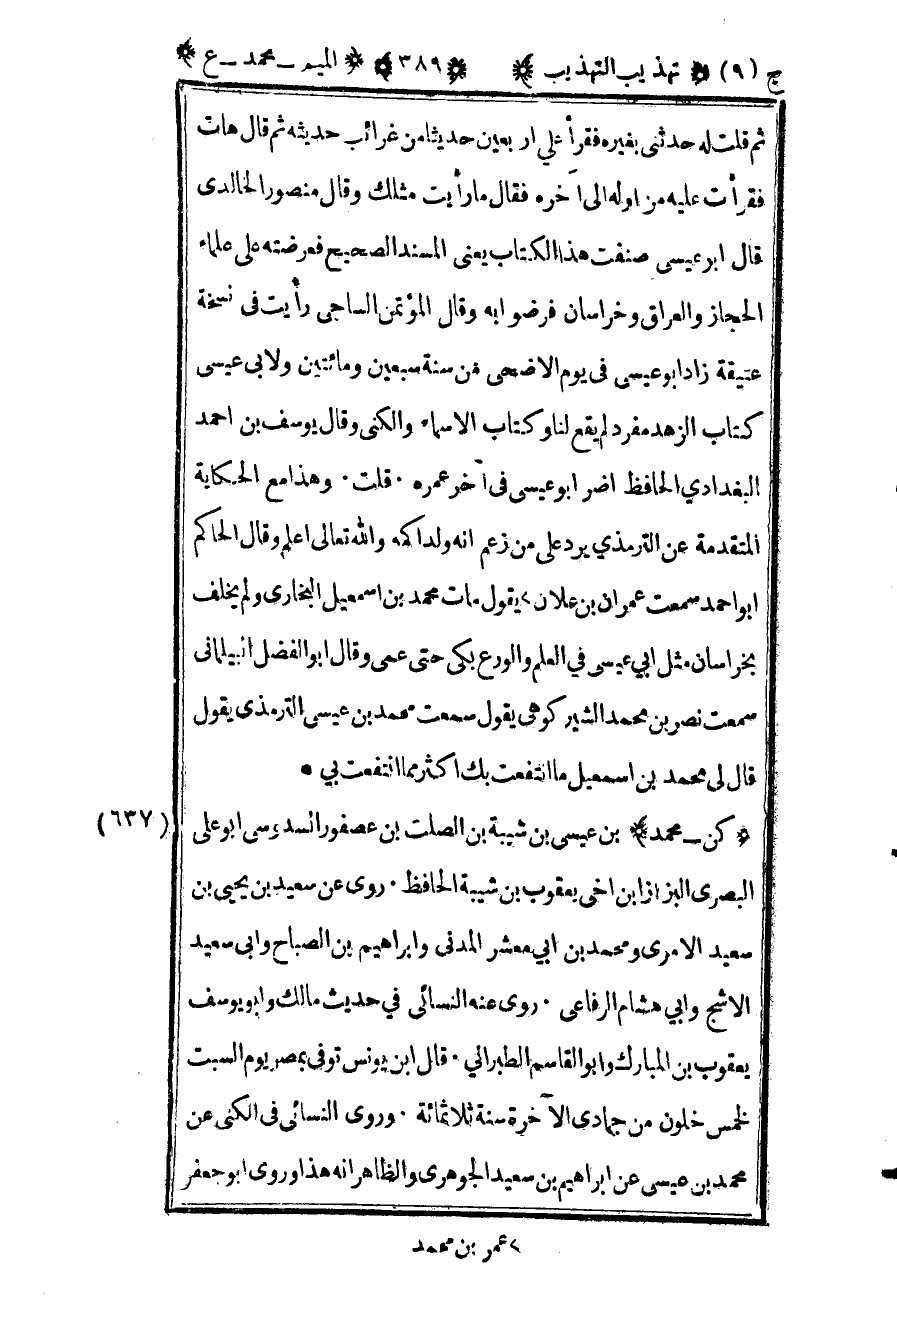 ج (٩) ﴿ تهذيب التهذيب ﴾ ﴿٣٨٩﴾ ﴿ الميم ــ محمد ــ ع ﴾
ثم قلت له حدثنى بغيره فقرأ علي اربعين حديثا من غرائب حديثه ثم قال هات
فقرأت عليه من اوله الى آخره فقال ما رأيت مثلك وقال منصور الخالدى
قال ابو عيسى صنفت هذا الكتاب يعنى المسند الصحيح فعرضته على علماء
الحجاز والعراق وخراسان فرضوا به وقال المؤتمن الساجى رأيت فى نسخة
عتيقة زاد ابو عيسى فى يوم الاضحى من سنة سبعين ومائتين ولابى عيسى
كتاب الزهد مفرد لم يقع لنا وكتاب الاسماء والكنى وقال يوسف بن احمد
البغدادي الحافظ اضر ابو عيسى فى آخر عمره · قلت · وهذا مع الحكاية
المتقدمة عن الترمذي يرد على من زعم انه ولد اكمه والله تعالى اعلم وقال الحاكم
ابو احمد سمعت عمران بن علان > يقول مات محمد بن اسمعيل البخارى ولم يخلف
بخراسان مثل ابي عيسى في العلم والورع بكى حتى عمى وقال ابو الفضل البيلمانى
سمعت نصر بن محمد الشير كوهى يقول سمعت محمد بن عيسى الترمذى يقول
قال لى محمد بن اسمعيل ما انتفعت بك اكثر مما انتفعت بي •
﴿ كن ــ محمد ﴾ بن عيسى بن شيبة بن الصلت بن عصفور السدوسى ابو على (٦٣٧)
البصرى البزاز ابن اخى يعقوب بن شيبة الحافظ · روى عن سعيد بن يحيى بن
سعيد الاموى ومحمد بن ابي معشر المدنى وابراهيم بن الصباح وابى سعيد
الاشج وابي هشام الرفاعى · روى عنه النسائى في حديث مالك وابو يوسف
يعقوب بن المبارك وابو القاسم الطبراني · قال ابن يونس توفى بمصر يوم السبت
لخمس خلون من جمادى الآخرة سنة ثلاثمائة · وروى النسائى فى الكنى عن
محمد بن عيسى عن ابراهيم بن سعيد الجوهرى والظاهر انه هذا وروى ابو جعفر
> عمر بن محمد